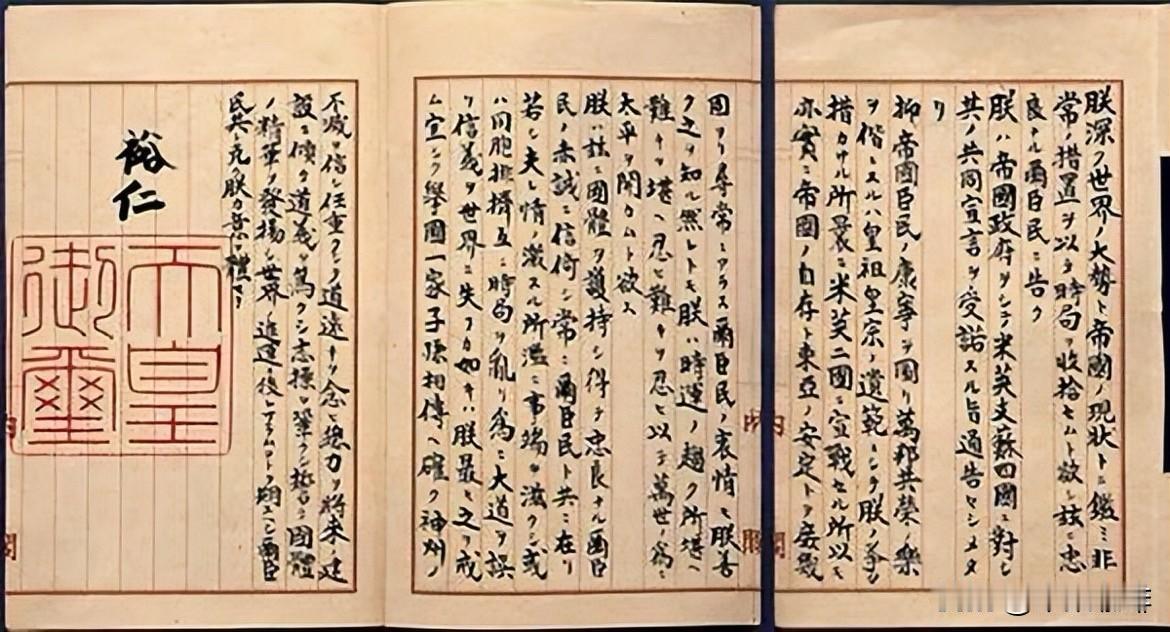 朕深ク世界ノ大勢ト帝國ノ現状トニ鑑ミ非
常ノ措置ヲ以テ時局ヲ收拾セムト欲シ茲ニ忠
良ナル爾臣民ニ告ク
朕ハ帝國政府ヲシテ米英支蘇四國ニ對シ
其ノ共同宣言ヲ受諾スル旨通告セシメタ
リ
抑帝國臣民ノ康寧ヲ圖リ萬邦共榮ノ樂
ヲ偕ニスルハ皇祖皇宗ノ遺範ニシテ朕ノ拳々
措カサル所曩ニ米英二國ニ宣戰セル所以モ
亦實ニ帝國ノ自存ト東亞ノ安定トヲ庶幾
内閣
固ヨリ尋常ニアラス爾臣民ノ衷情モ朕善
ク之ヲ知ル然レトモ朕ハ時運ノ趨ク所堪ヘ
難キヲ堪ヘ忍ヒ難キヲ忍ヒ以テ萬世ノ爲ニ
太平ヲ開カムト欲ス
朕ハ茲ニ國體ヲ護持シ得テ忠良ナル爾臣
民ノ赤誠ニ信倚シ常ニ爾臣民ト共ニ在リ
若シ夫レ情ノ激スル所濫ニ事端ヲ滋クシ或
ハ同胞排擠互ニ時局ヲ亂リ爲ニ大道ヲ誤
リ信義ヲ世界ニ失フカ如キハ朕最モ之ヲ戒
ム宜シク擧國一家子孫相傳ヘ確ク神州ノ
不滅ヲ信シ任重クシテ道遠キヲ念ヒ總力ヲ將來ノ建
設ニ傾ケ道義ヲ篤クシ志操ヲ鞏クシ誓テ國體
ノ精華ヲ發揚シ世界ノ進運ニ後レサラムコトヲ期スヘシ爾臣
民其レ克ク朕カ意ヲ體セヨ
裕仁
天皇
御璽